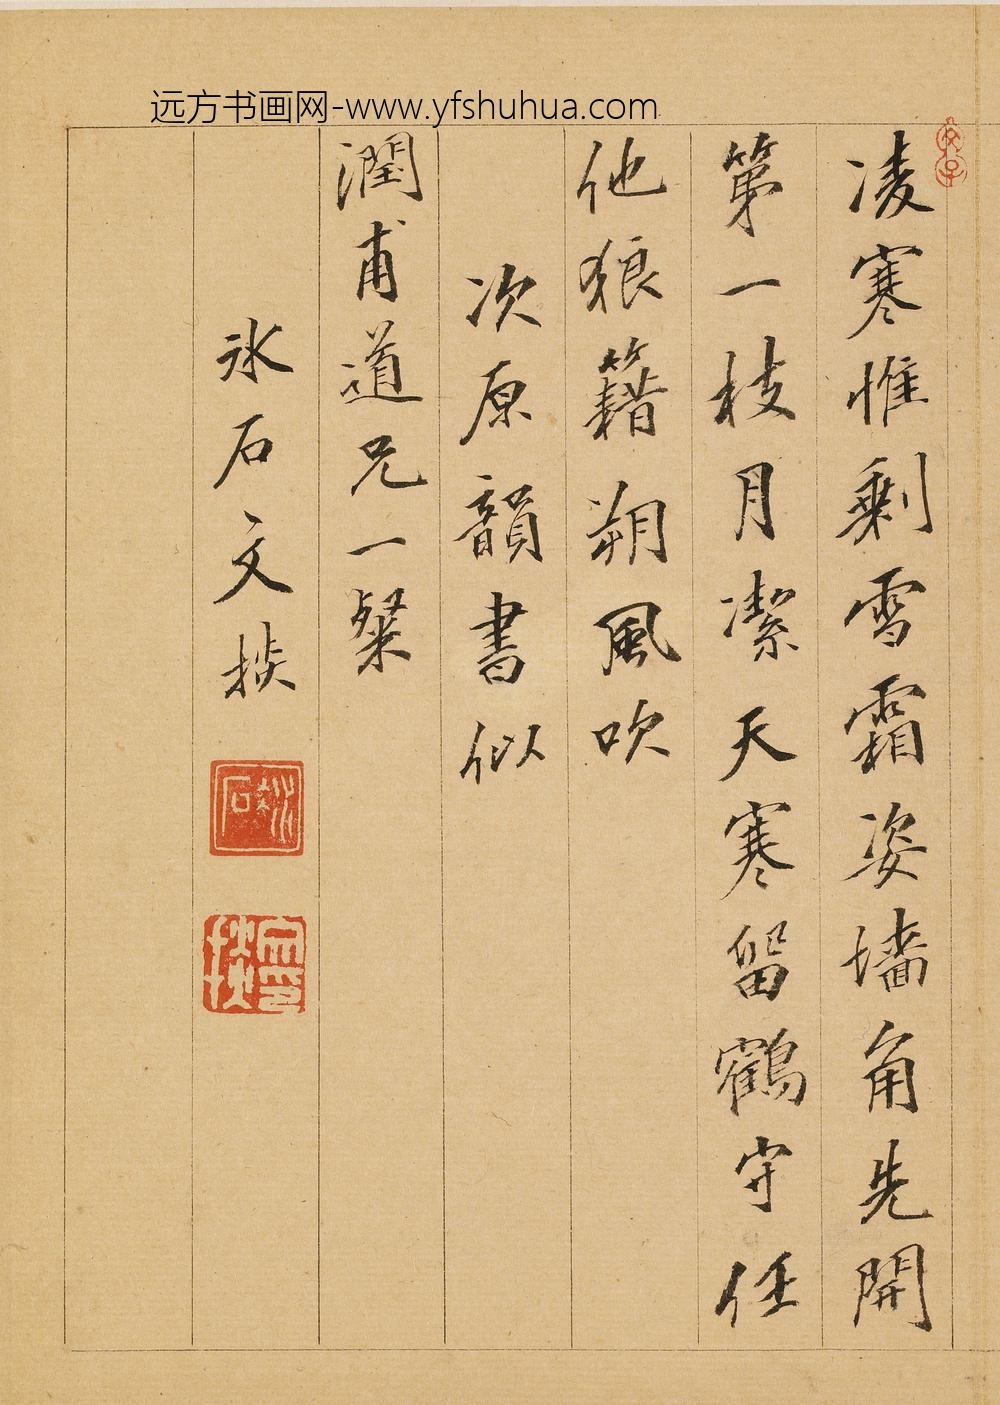 远方书画网-www.yfshuhua.com
凌寒惟剩雪霜姿墙角先開
第一枝月凓天寒留鶴守任
他狼籍朔風吹
次原韻書似
潤甫道兄一粲
氷石文掞